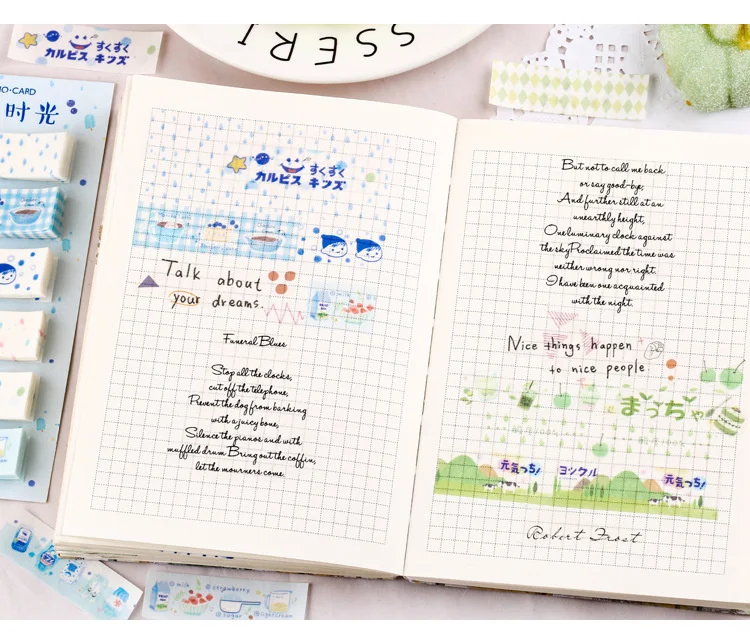 すくすく
カルピス キッズ
SSERT
O·CARD
时光
すくすく
カルピス キッズ
Talk about
your dreams.
milk
Funeral Blues
Stop all the clocks,
cut off the telephone,
Prevent the dog from barking
with a juicy bone,
Silence the pianos and with
muffled drum Bring out the coffin,
let the mourners come.
But not to call me back
or say good-bye;
And further still at an
unearthly height,
One luminary clock against
the sky Proclaimed the time was
neither wrong nor right.
I have been one acquainted
with the night.
Nice things happen
to nice people.
まっちゃ
元気っち!
ヨックル
元気っち!
Robert Frost
milk
strawberry
sugar